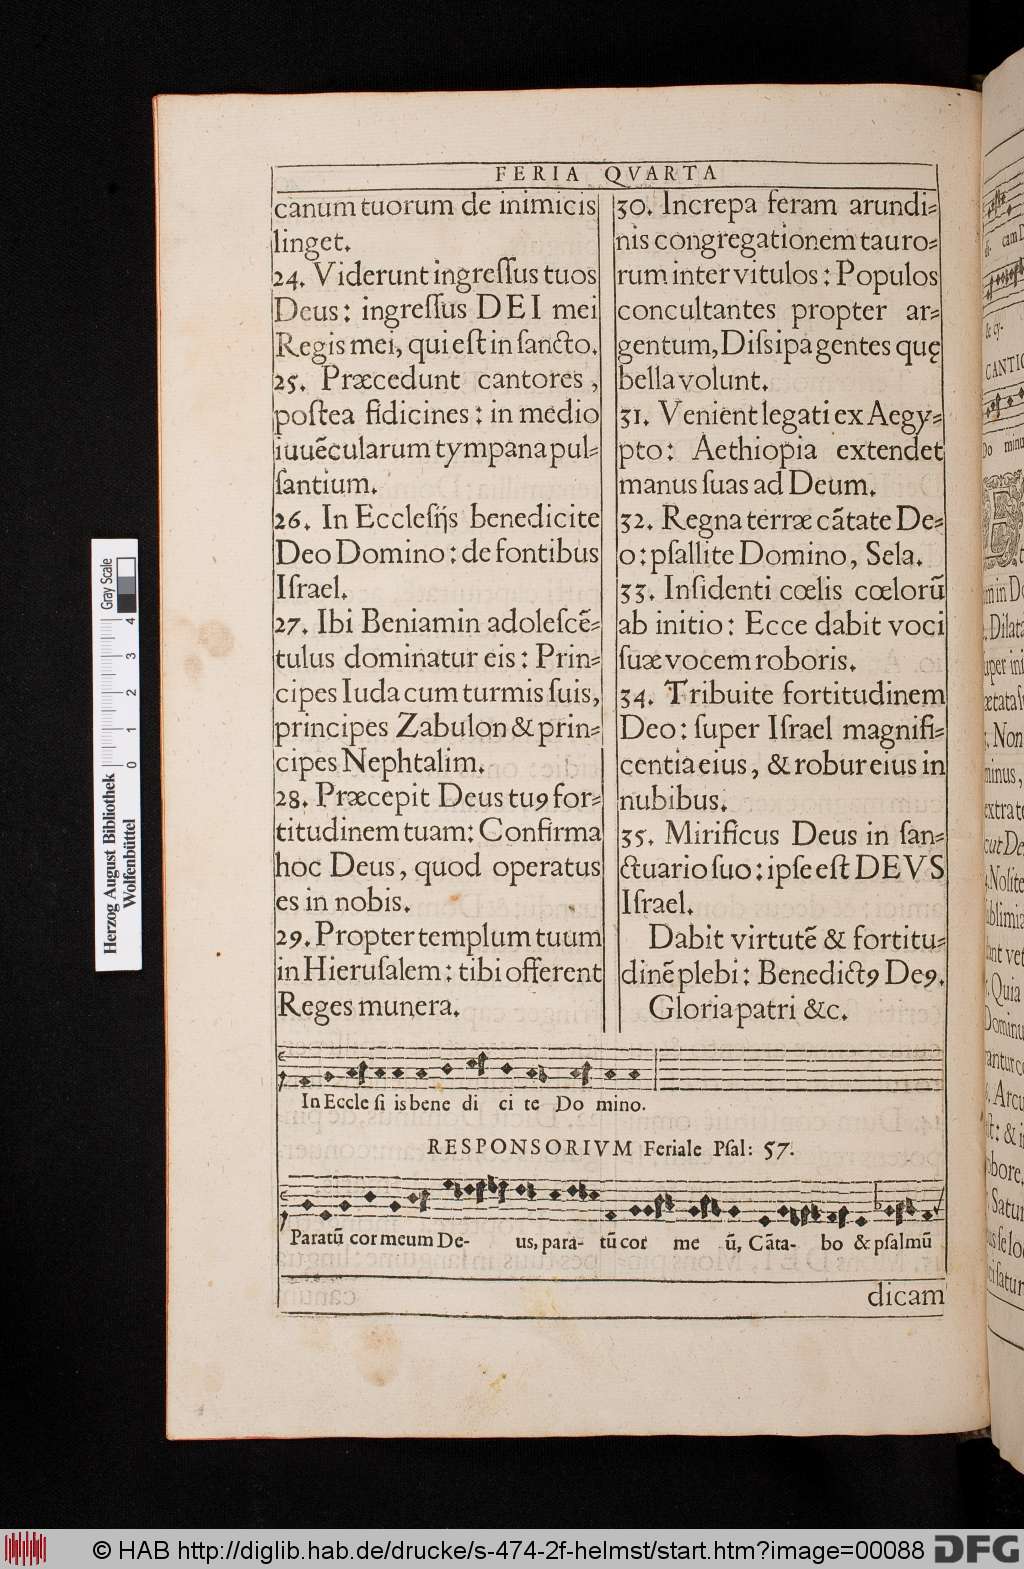 FERIA QVARTA
canum tuorum de inimicis
linget.
24. Viderunt ingreſſus tuos
Deus: ingreſſus DEI mei
Regis mei, qui eſt in ſancto.
25. Præcedunt cantores,
poſtea fidicines: in medio
iuuẽcularum tympana pul-
ſantium.
26. In Eccleſijs benedicite
Deo Domino: de fontibus
Iſrael.
27. Ibi Beniamin adoleſcẽ-
tulus dominatur eis: Prin-
cipes Iuda cum turmis ſuis,
principes Zabulon & prin-
cipes Nephtalim.
28. Præcepit Deus tuꝰ for-
titudinem tuam: Confirma
hoc Deus, quod operatus
es in nobis.
29. Propter templum tuum
in Hieruſalem: tibi offerent
Reges munera.
30. Increpa feram arundi-
nis congregationem tauro-
rum inter vitulos: Populos
concultantes propter ar-
gentum, Diſsipa gentes quę
bella volunt.
31. Venient legati ex Aegy-
pto: Aethiopia extendet
manus ſuas ad Deum.
32. Regna terræ cãtate De-
o: pſallite Domino, Sela.
33. Inſidenti cœlis cœlorũ
ab initio: Ecce dabit voci
ſuæ vocem roboris.
34. Tribuite fortitudinem
Deo: ſuper Iſrael magnifi-
centia eius, & robur eius in
nubibus.
35. Mirificus Deus in ſan-
ctuario ſuo: ipſe eſt DEVS
Iſrael.
Dabit virtutẽ & fortitu-
dinẽ plebi: Benedictꝰ Deꝰ.
Gloria patri &c.
In Eccle ſi is bene di ci te Do mino.
RESPONSORIVM Feriale Pſal: 57.
Paratũ cor meum De- us, para- tũ cor me ũ, Cãta- bo & pſalmũ
dicam
Herzog August Bibliothek
Wolfenbüttel
0 1 2 3 4
Gray Scale
CANTIC
Do minu
© HAB http://diglib.hab.de/drucke/s-474-2f-helmst/start.htm?image=00088
DFG